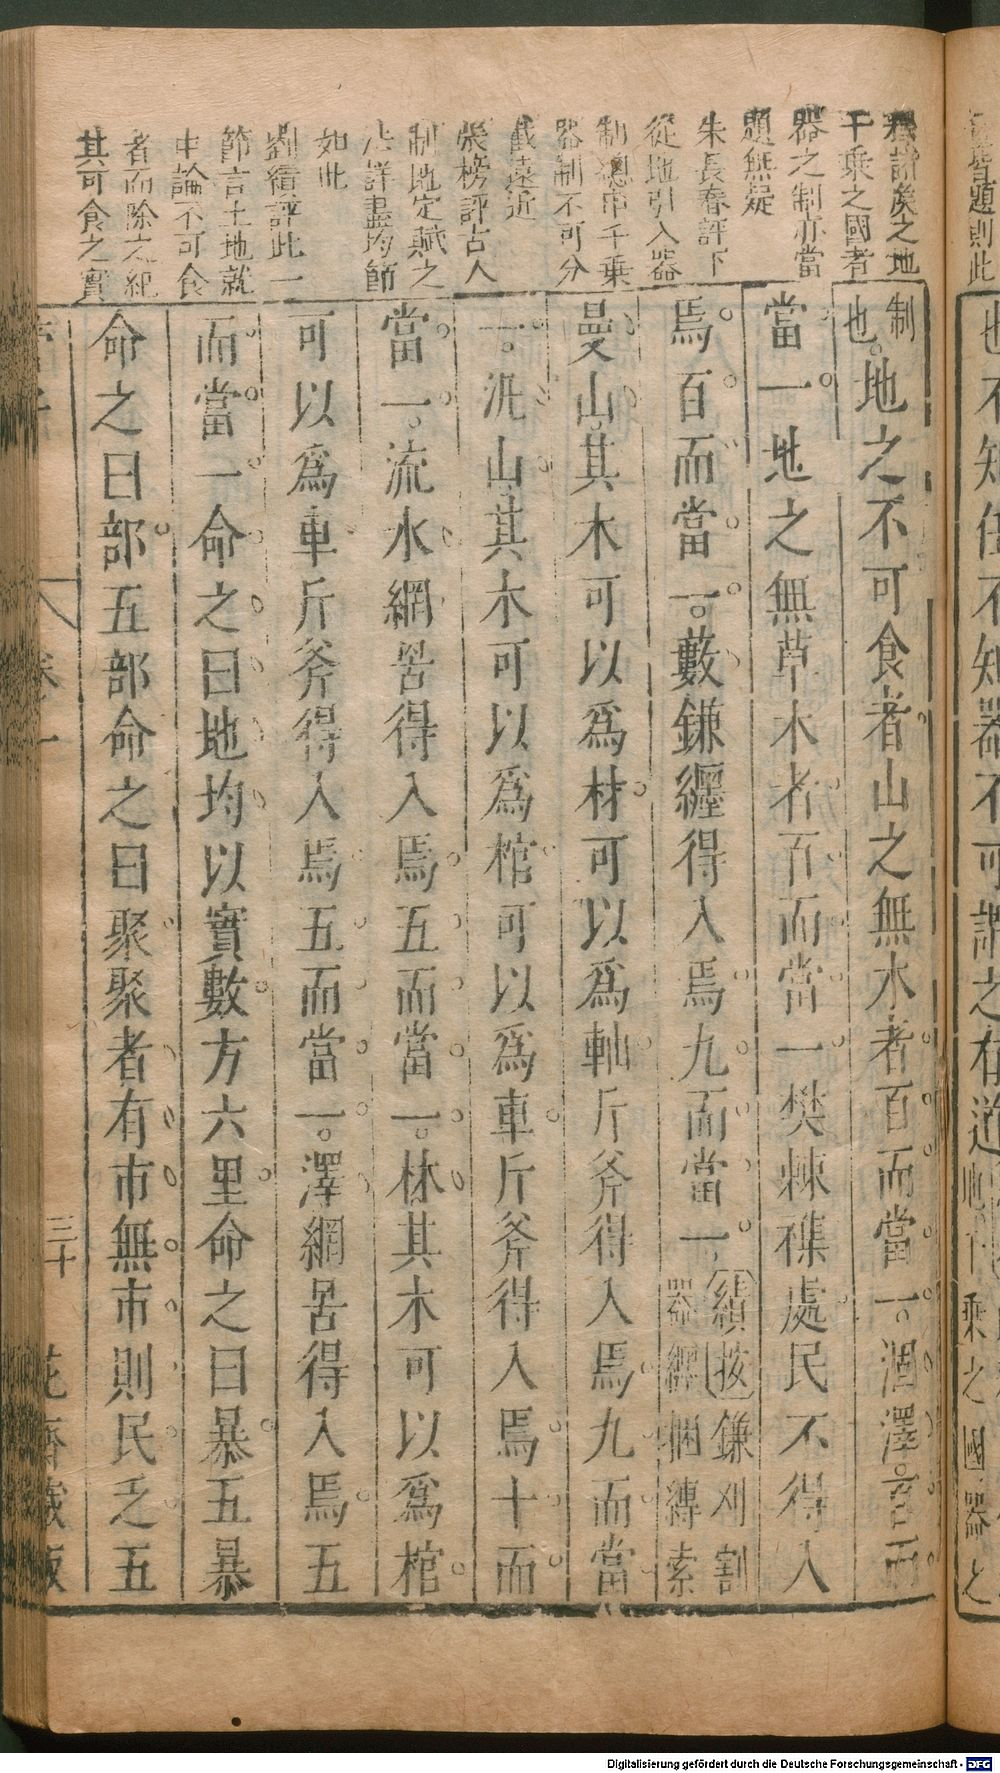 皆題則此
也不知任不知器不可謂之有道地千乘之國器之
釋諸侯之地
千乘之國者
器之制亦當
題無疑
朱長春評下
從地引入器
制總中千乘
器制不可分
截遠近
張榜評古人
制地定賦之
法詳盡均節
如此
劉績評此一
節言土地就
中論不可食
者而除之紀
其可食之實
制也。地之不可食者山之無水者百而當一。涸澤。百而
當一地之無草木者百而當一樊棘襍處民不得入
焉百而當一。藪鎌纏得入焉九而當一績按鎌刈割器纏捆縳索
曼山其木可以爲材可以爲軸斤斧得入焉九而當
一。汎山其木可以爲棺可以爲車斤斧得入焉十而
當一。流水網罟得入焉五而當一。林其木可以爲棺
可以爲車斤斧得入焉五而當一。澤網罟得入焉五
而當一命之曰地均以實數方六里命之曰暴五暴
命之曰部五部命之曰聚聚者有市無市則民乏五
管子 卷一 三十 花齋藏板
Digitalisierung gefördert durch die Deutsche Forschungsgemeinschaft - DFG